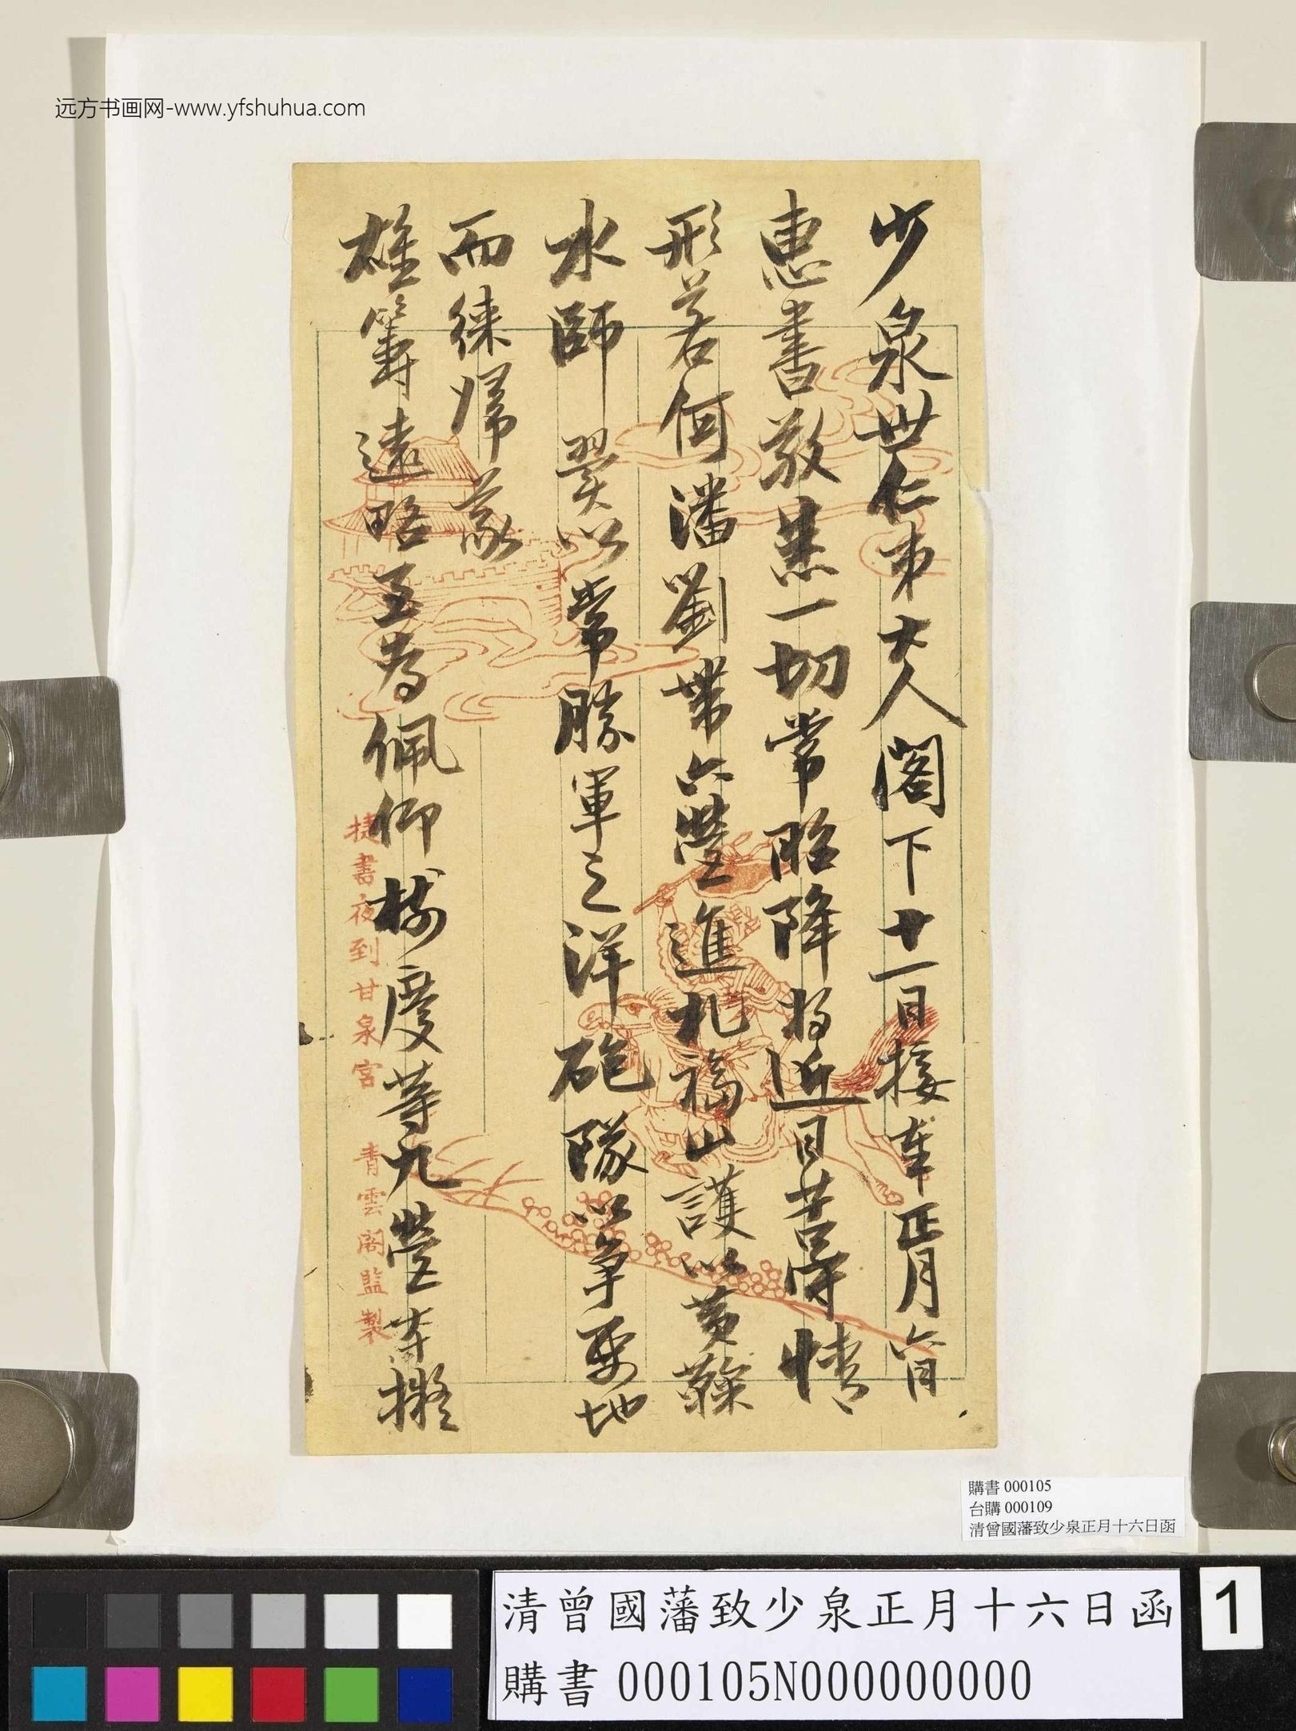 远方书画网-www.yfshuhua.com
少泉世仁弟大人閣下十一日接奉正月六日
惠書敬悉一切常昭降將近日苦守情
形若何潘劉帶六營進札福山護以黃
水師翼以常勝軍之洋砲隊以爭要地
而徠歸義
雄籌遠略至為佩仰樹慶等九營等擬
捷書夜到甘泉宮 青雲閣監製
購書 000105
台購 000109
清曾國藩致少泉正月十六日函
清曾國藩致少泉正月十六日函
購書 000105N000000000
1